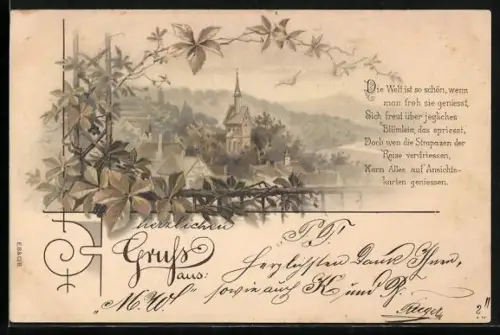 Die Welt ist so schön, wenn
man froh sie geniesst,
Sich freut über jegliches
Blümlein, das spriesst,
Doch wen die Strapazen der
Reise verdriessen,
Kann Alles auf Ansichts-
karten geniessen.
herzlichen
Gruss
aus:
"M. W!"
"P.P!
Herzlichsten Dank Ihnen,
sowie auch K und P.
?!"